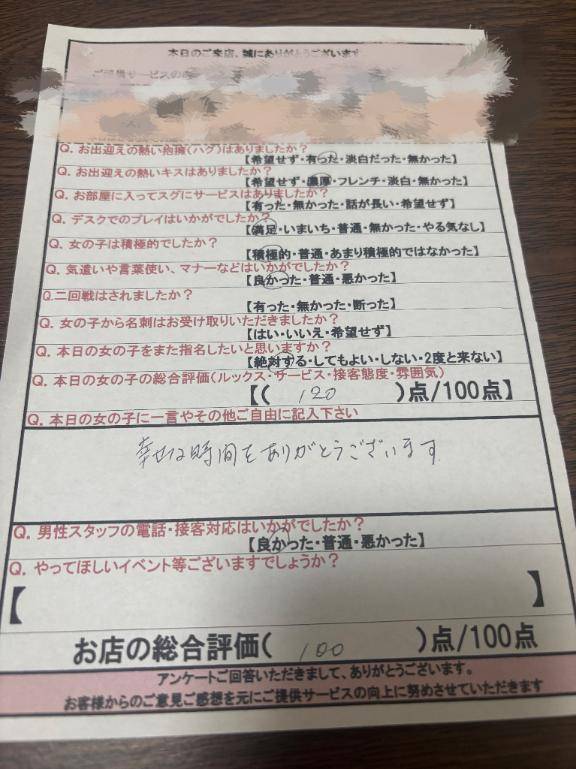 本日のご来店、誠にありがとうございます
ご提供サービスの
Q. お出迎えの熱い抱擁(ハグ)はありましたか?
【希望せず・有った・淡白だった・無かった】
Q. お出迎えの熱いキスはありましたか?
【希望せず・濃厚・フレンチ・淡白・無かった】
Q. お部屋に入ってスグにサービスはありましたか?
【有った・無かった・話が長い・希望せず】
Q. デスクでのプレイはいかがでしたか?
【満足・いまいち・普通・無かった・やる気なし】
Q. 女の子は積極的でしたか?
【積極的・普通・あまり積極的ではなかった】
Q. 気遣いや言葉使い、マナーなどはいかがでしたか?
【良かった・普通・悪かった】
Q.二回戦はされましたか?
【有った・無かった・断った】
Q. 女の子から名刺はお受け取りいただきましたか?
【はい・いいえ・希望せず】
Q. 本日の女の子をまた指名したいと思いますか?
【絶対する・してもよい・しない・2度と来ない】
Q. 本日の女の子の総合評価(ルックス・サービス・接客態度・雰囲気)
【( 120 )点/100点】
Q. 本日の女の子に一言やその他ご自由に記入下さい
幸せな時間をありがとうございます
Q. 男性スタッフの電話・接客対応はいかがでしたか?
【良かった・普通・悪かった】
Q. やってほしいイベント等ございますでしょうか?
【 】
お店の総合評価( 100 )点/100点
アンケートご回答いただきまして、ありがとうございます。
お客様からのご意見ご感想を元にご提供サービスの向上に努めさせていただきます